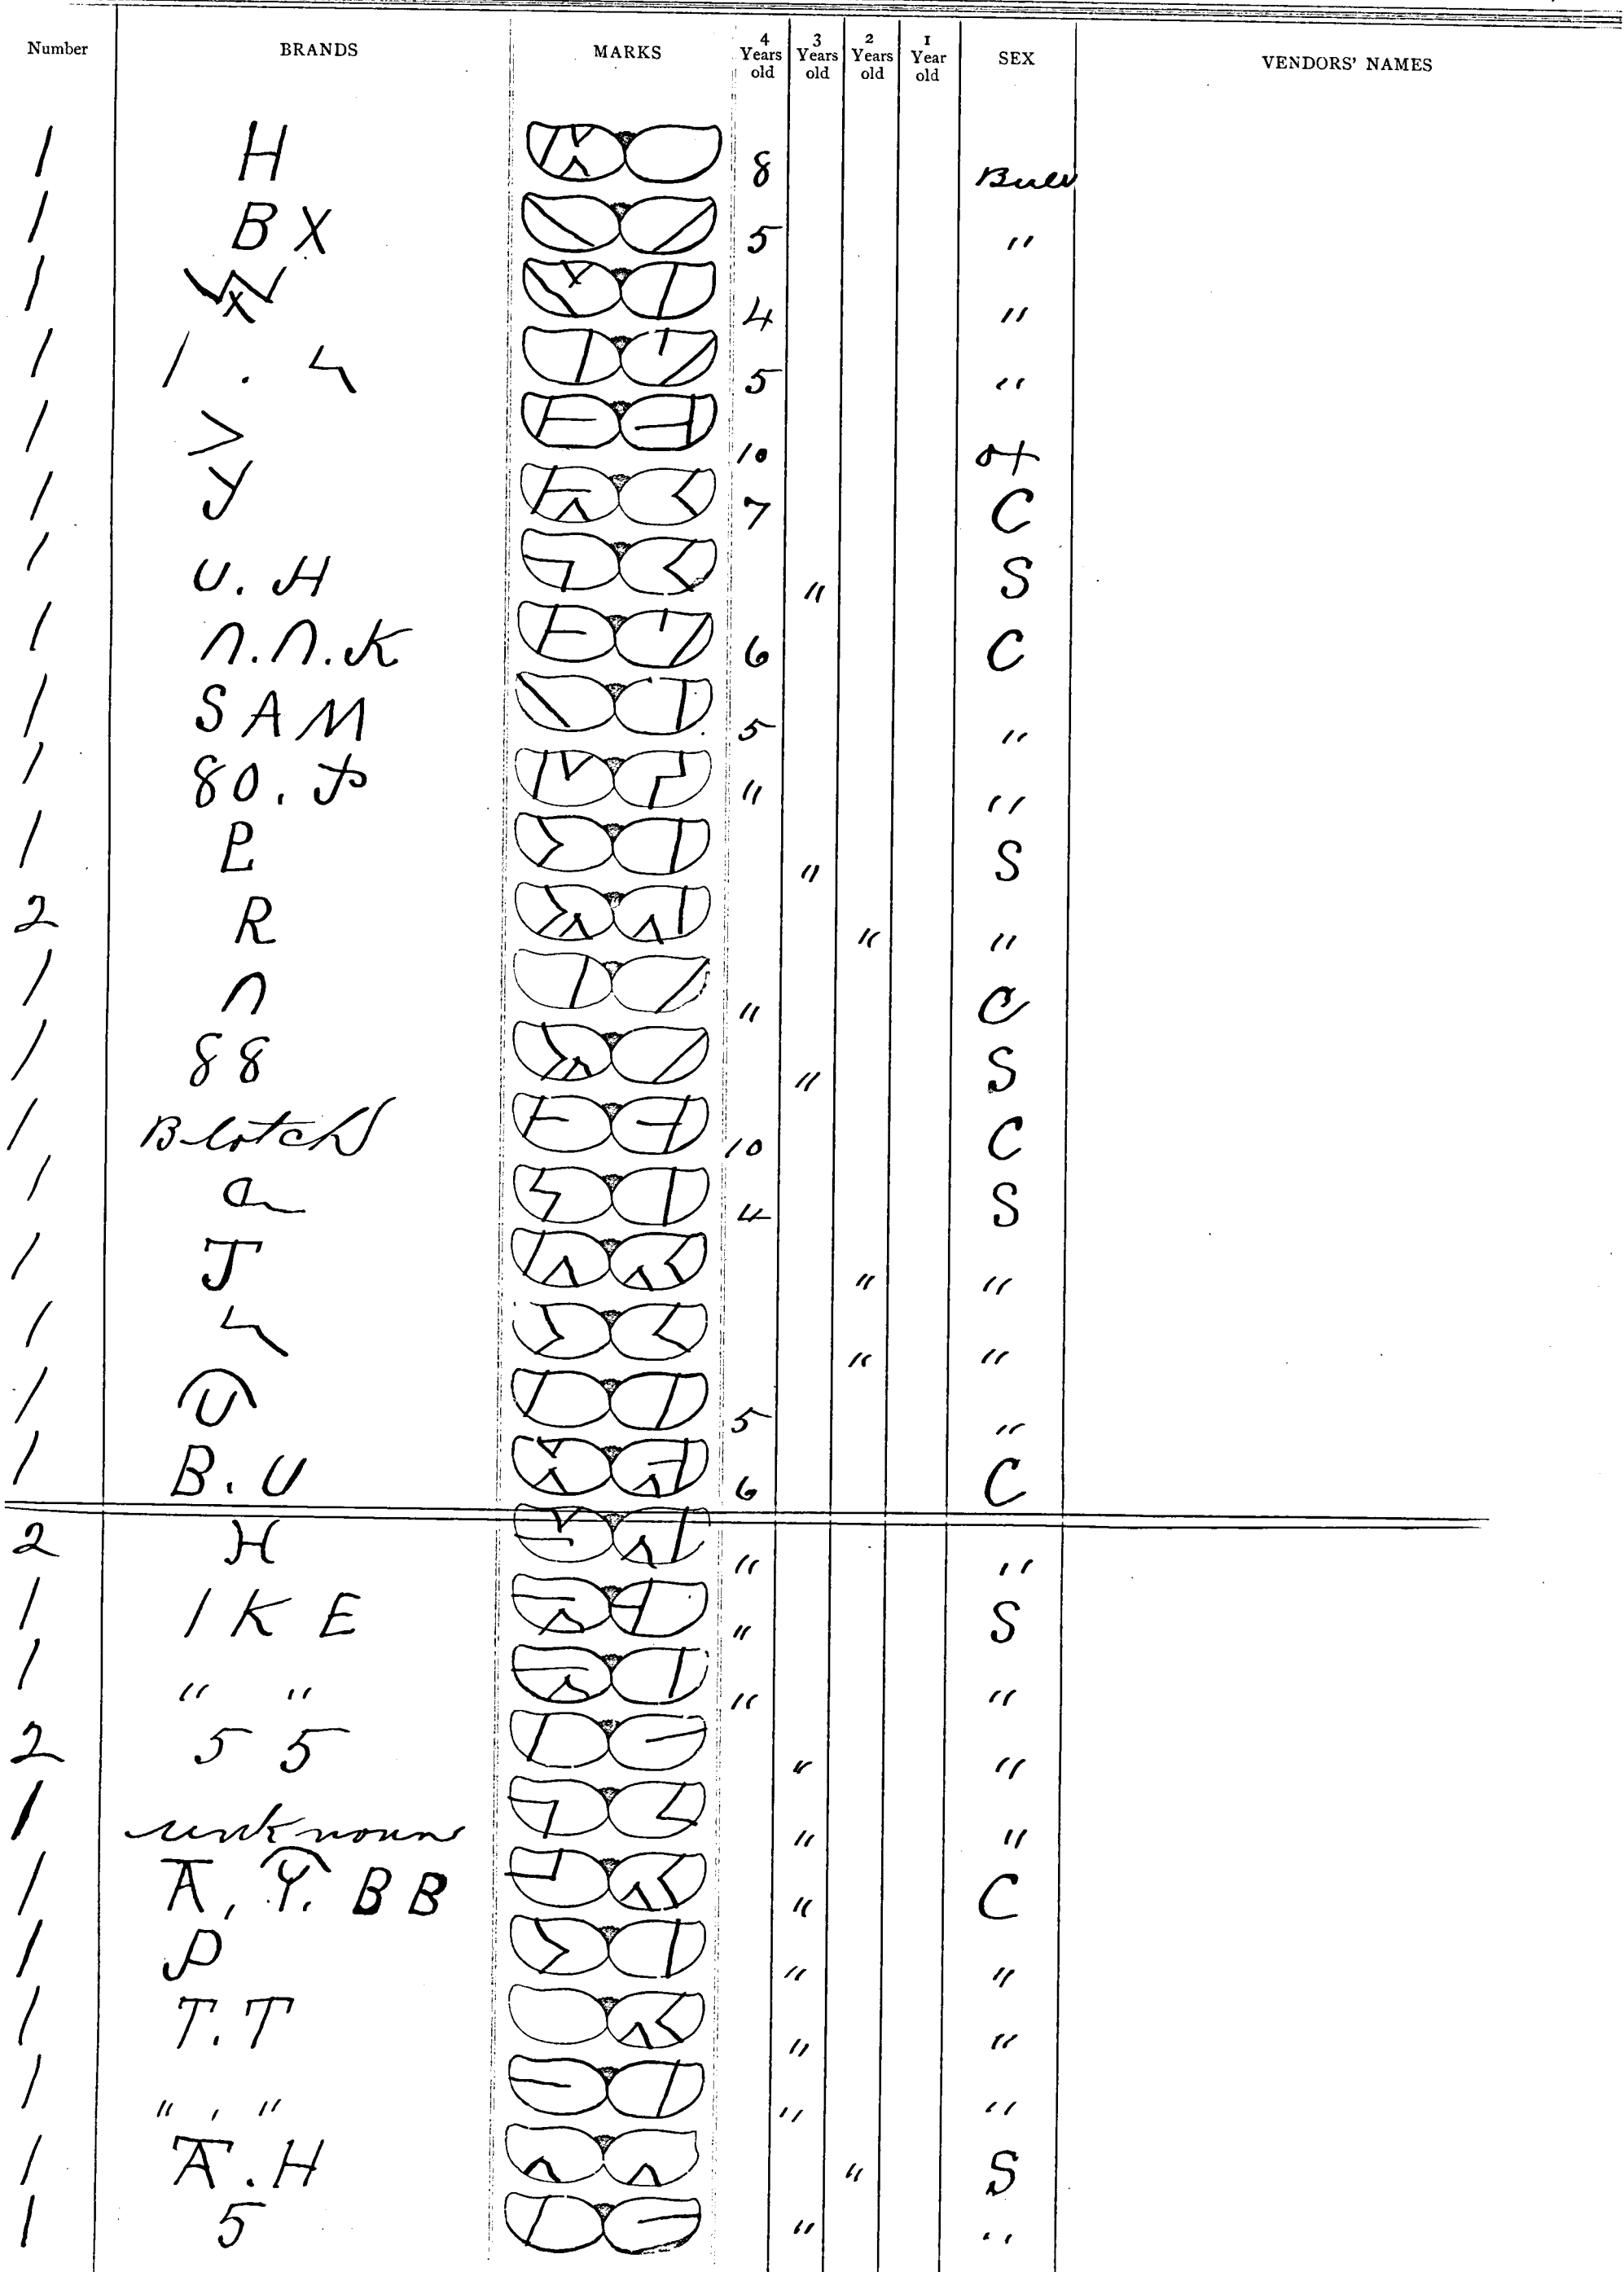 Number BRANDS MARKS 4 Years old 3 Years old 2 Years old 1 Year old SEX VENDORS' NAMES
1 H 8 Bull
1 B X 5 "
1 W X 4 "
1 1 . 5 "
1 > 10 ox
1 Y 7 C
1 U. H " S
1 ∩.∩.K 6 C
1 S A M 5 "
1 80. " "
1 " S
2 R " "
1 ∩ " C
1 88 " S
1 Blotch 10 C
1 a 4 S
1 J " "
1 " "
1 U 5 "
1 B. U 6 C
2 H " "
1 I K E " S
1 " " " "
2 5 5 " "
1 unknown " "
1 A, Y. B B " C
1 P " "
1 T. T " "
1 " , " " "
1 A. H " S
1 5 " "